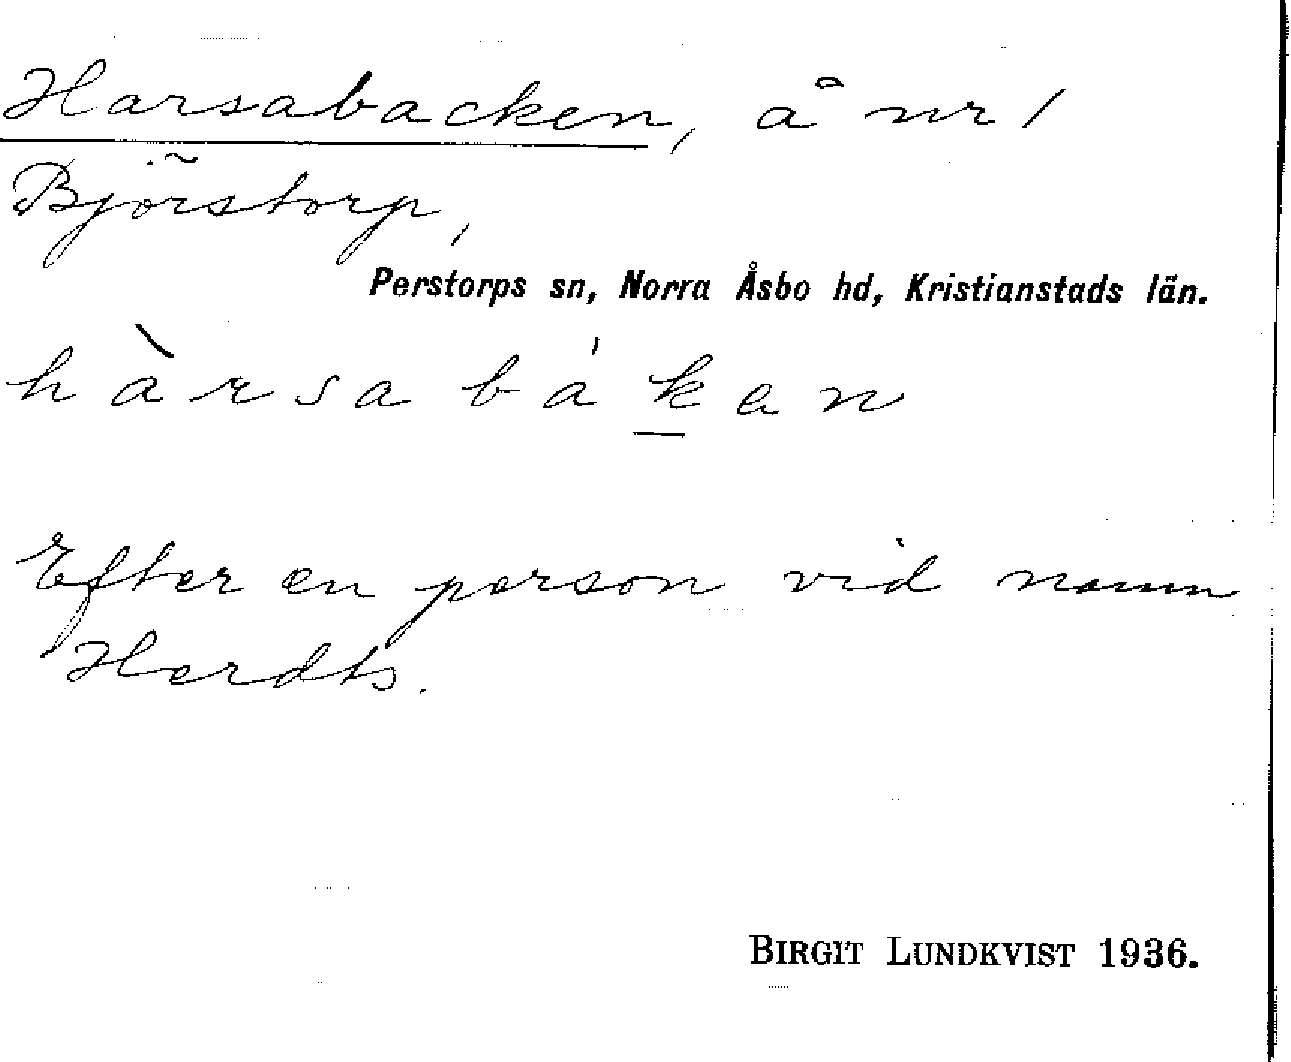 Harsabacken, å nr 1
Björstorp,
Perstorps sn, Norra Åsbo hd, Kristianstads län.
hàrsabákan
Efter en person vid namn
Herdts.
BIRGIT LUNDKVIST 1936.